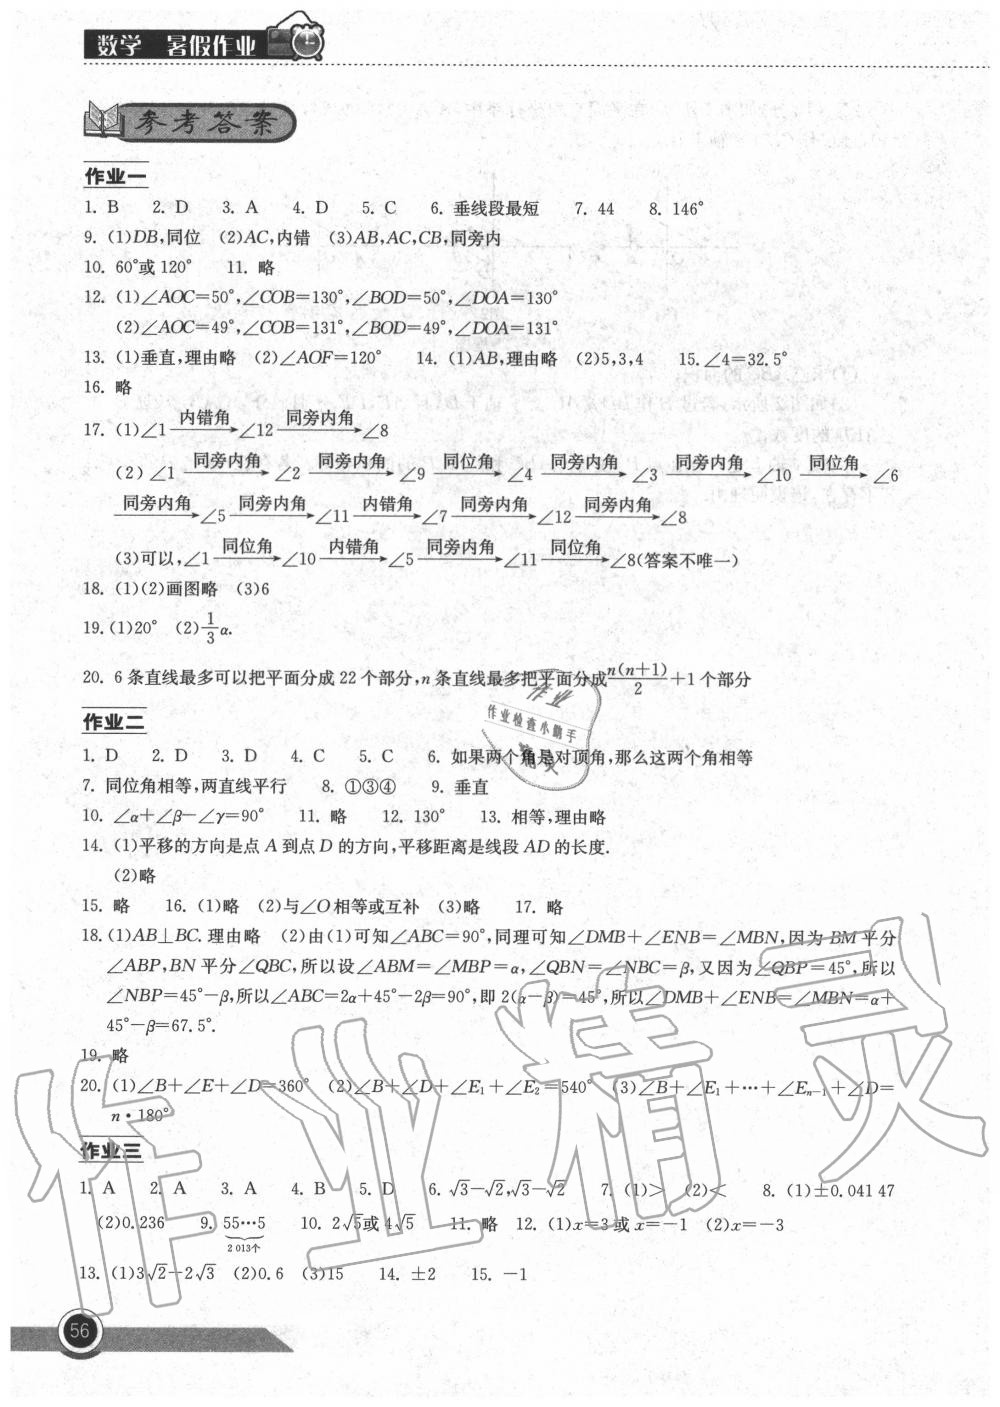 数学 暑假作业
参考答案
作业一
1. B 2. D 3. A 4. D 5. C 6. 垂线段最短 7. 44 8. 146°
9. (1)DB,同位 (2)AC,内错 (3)AB,AC,CB,同旁内
10. 60°或 120° 11. 略
12. (1)∠AOC=50°,∠COB=130°,∠BOD=50°,∠DOA=130°
(2)∠AOC=49°,∠COB=131°,∠BOD=49°,∠DOA=131°
13. (1)垂直,理由略 (2)∠AOF=120° 14. (1)AB,理由略 (2)5,3,4 15. ∠4=32.5°
16. 略
17. (1)∠1 —内错角→ ∠12 —同旁内角→ ∠8
(2)∠1 —同旁内角→ ∠2 —同旁内角→ ∠9 —同位角→ ∠4 —同旁内角→ ∠3 —同旁内角→ ∠10 —同位角→ ∠6
—同旁内角→ ∠5 —同旁内角→ ∠11 —内错角→ ∠7 —同旁内角→ ∠12 —同旁内角→ ∠8
(3)可以,∠1 —同位角→ ∠10 —内错角→ ∠5 —同旁内角→ ∠11 —同位角→ ∠8(答案不唯一)
18. (1)(2)画图略 (3)6
19. (1)20° (2)1/3 α.
20. 6 条直线最多可以把平面分成 22 个部分,n 条直线最多把平面分成 n(n+1)/2 +1 个部分
作业二
1. D 2. D 3. D 4. C 5. C 6. 如果两个角是对顶角,那么这两个角相等
7. 同位角相等,两直线平行 8. ①③④ 9. 垂直
10. ∠α+∠β-∠γ=90° 11. 略 12. 130° 13. 相等,理由略
14. (1)平移的方向是点 A 到点 D 的方向,平移距离是线段 AD 的长度.
(2)略
15. 略 16. (1)略 (2)与∠O相等或互补 (3)略 17. 略
18. (1)AB⊥BC. 理由略 (2)由(1)可知∠ABC=90°,同理可知∠DMB+∠ENB=∠MBN,因为 BM 平分
∠ABP,BN 平分∠QBC,所以设∠ABM=∠MBP=α,∠QBN=∠NBC=β,又因为∠QBP=45°,所以
∠NBP=45°-β,所以∠ABC=2α+45°-2β=90°,即 2(α-β)=45°,所以∠DMB+∠ENB=∠MBN=α+
45°-β=67.5°.
19. 略
20. (1)∠B+∠E+∠D=360° (2)∠B+∠D+∠E₁+∠E₂=540° (3)∠B+∠E₁+⋯+∠Eₙ₋₁+∠D=
n·180°
作业三
1. A 2. A 3. A 4. B 5. D 6. √3-√2,√3-√2 7. (1)> (2)< 8. (1)±0.041 47
(2)0.236 9. 55⋯5 10. 2√5或 4√5 11. 略 12. (1)x=3 或 x=-1 (2)x=-3
2 013个
13. (1)3√2-2√3 (2)0.6 (3)15 14. ±2 15. -1
56
作业
作业检查小助手
精灵
作业精灵